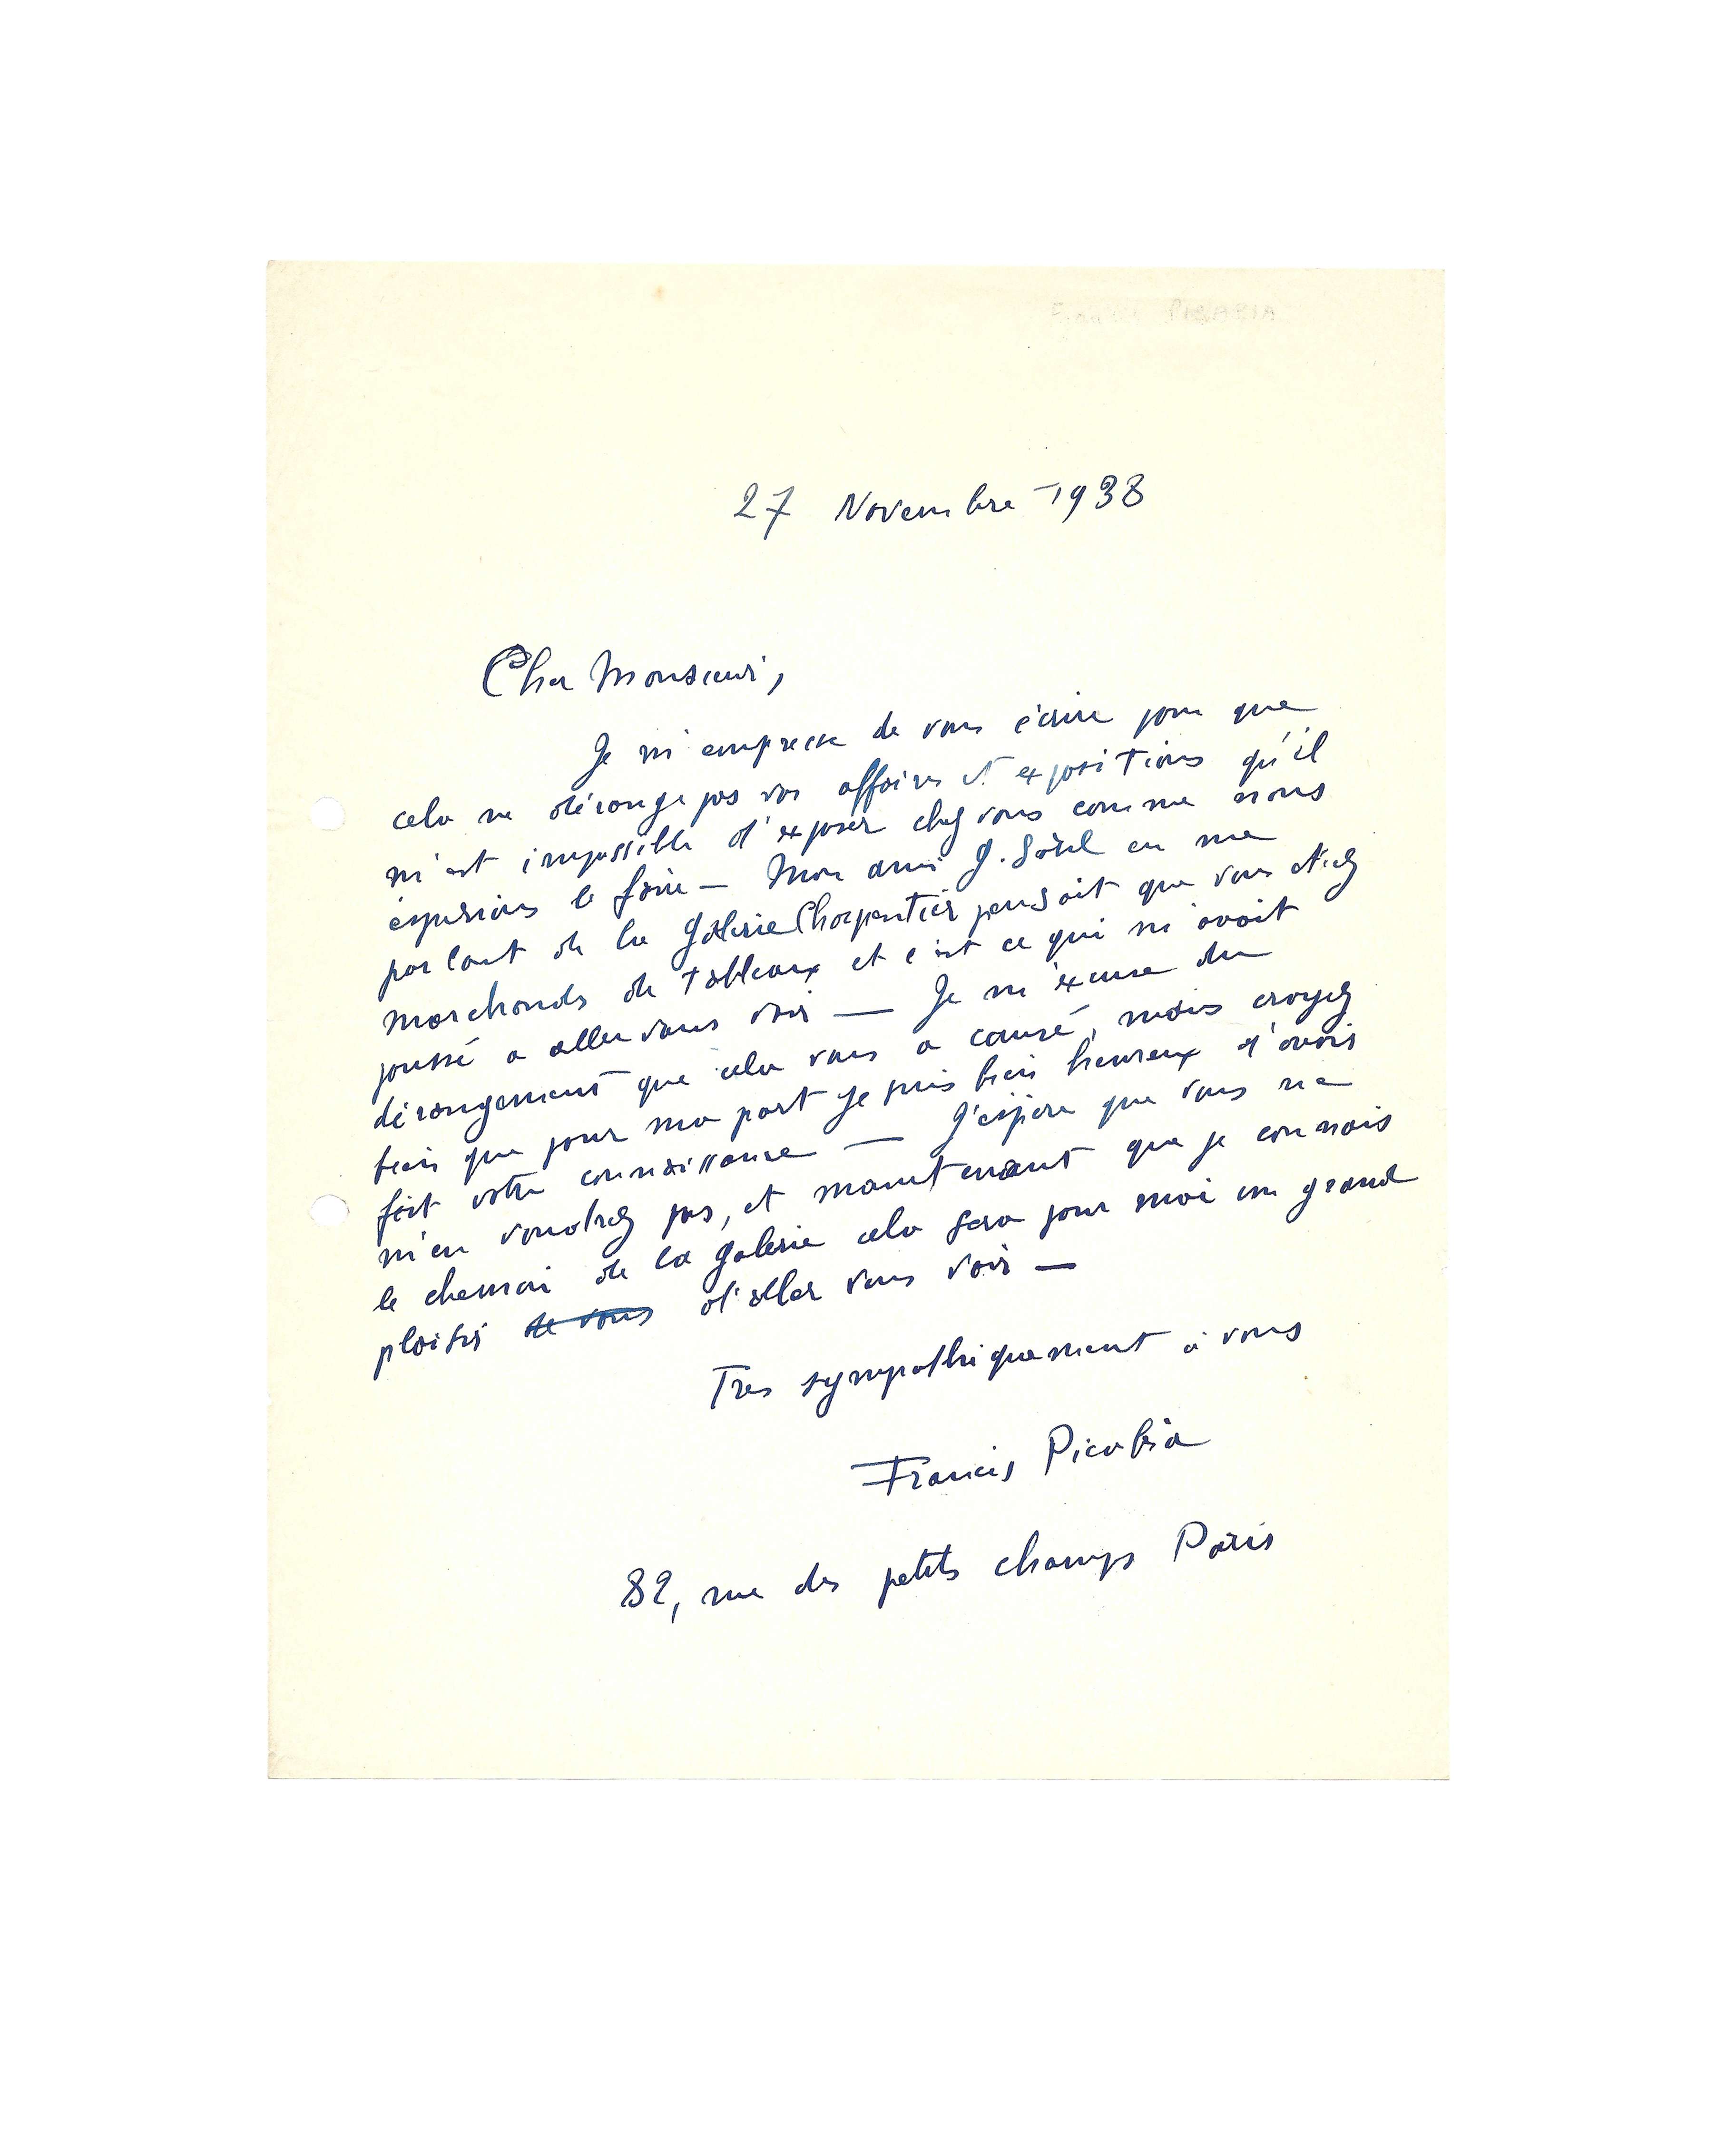 Francis PICABIA
27 Novembre - 1938
Cher Monsieur,
Je m'empresse de vous écrire pour que
cela ne dérange pas vos affaires et expositions qu'il
m'est impossible d'exposer chez vous comme nous
éspérions le faire — Mon ami G. en me
parlant de la Galerie Charpentier pensait que vous étiez
marchands de tableaux et c'est ce qui m'avait
poussé a aller vous voir — Je m'éxcuse du
dérangement que cela vous a causé, mais croyez
bien que pour ma part je suis bien heureux d'avoir
fait votre connaissance — J'espère que vous ne
m'en voudrez pas, et maintenant que je connais
le chemin de la galerie cela sera pour moi un grand
plaisir de vous d'aller vous voir —
Tres sympathiquement à vous
Francis Picabia
82, rue des petits champs Paris